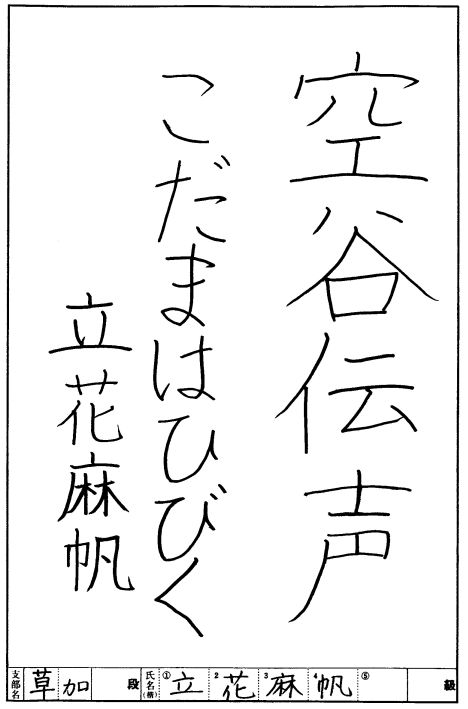 空谷伝声
こだまはひびく
立花麻帆
支部名 草加 段 氏名(楷) ① 立 2 花 3 麻 4 帆 ⑤ 級